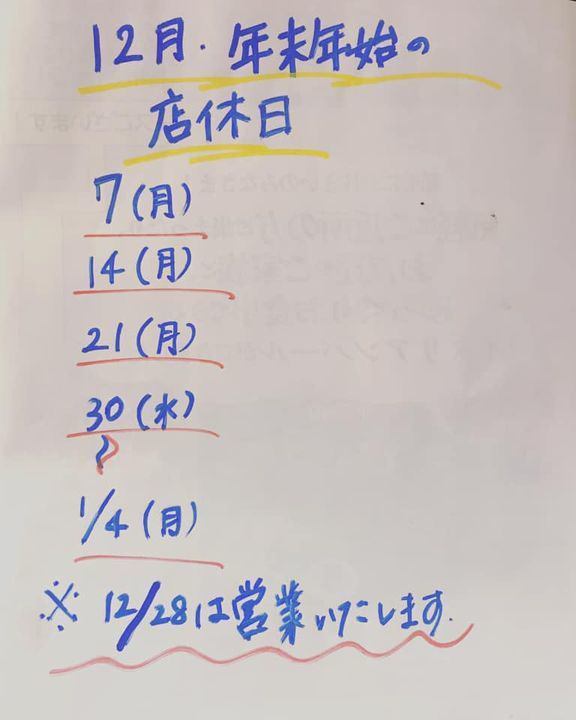 12月.年末年始の
店休日
7(月)
14(月)
21(月)
30(水)
〜
1/4(月)
※ 12/28は営業いたします.